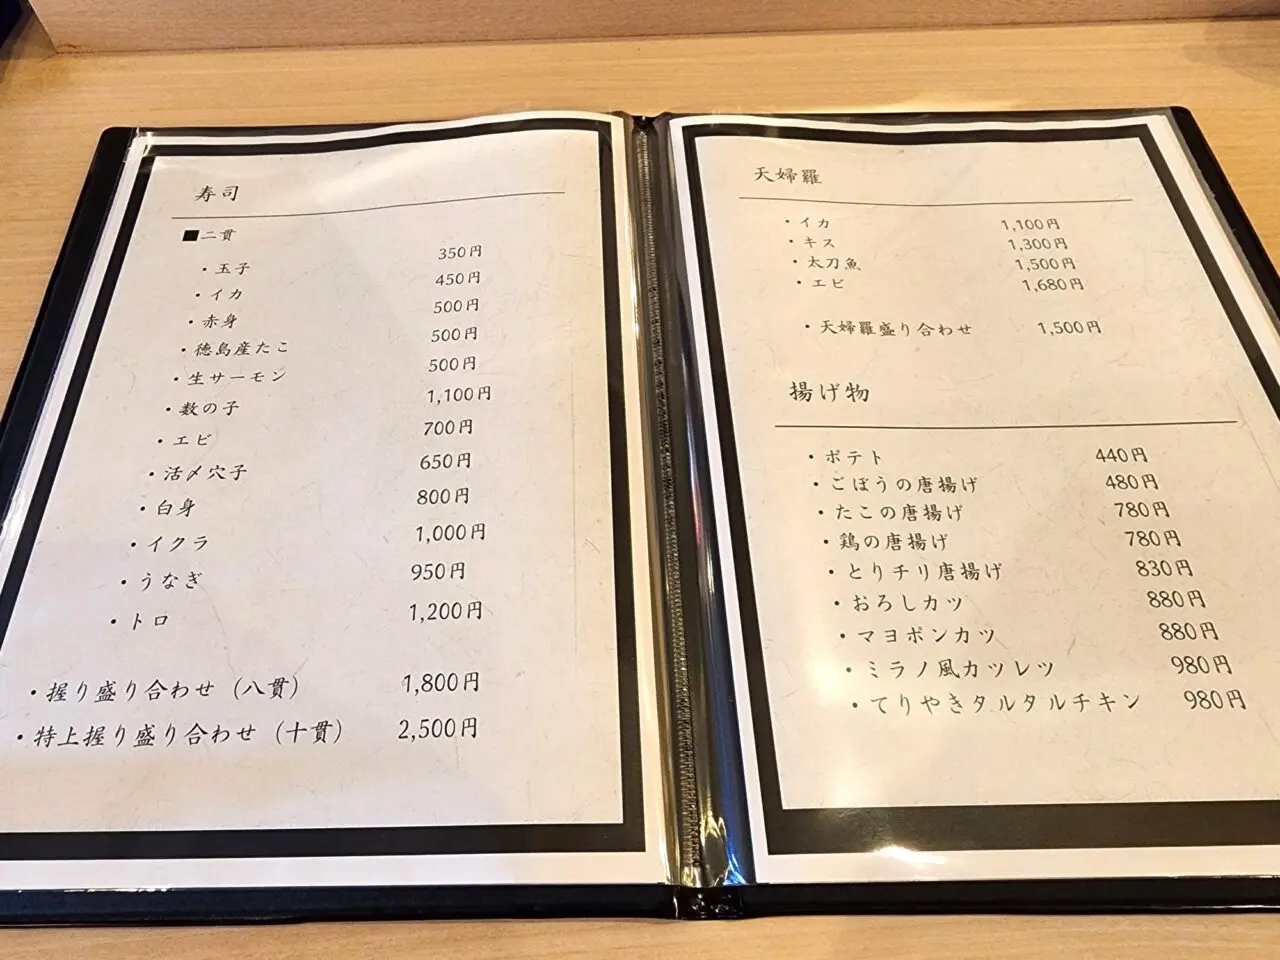 寿司
■二貫
・玉子 350円
・イカ 450円
・赤身 500円
・徳島産たこ 500円
・生サーモン 500円
・数の子 1,100円
・エビ 700円
・活〆穴子 650円
・白身 800円
・イクラ 1,000円
・うなぎ 950円
・トロ 1,200円
・握り盛り合わせ（八貫） 1,800円
・特上握り盛り合わせ（十貫） 2,500円
天婦羅
・イカ 1,100円
・キス 1,300円
・太刀魚 1,500円
・エビ 1,680円
・天婦羅盛り合わせ 1,500円
揚げ物
・ポテト 440円
・ごぼうの唐揚げ 480円
・たこの唐揚げ 780円
・鶏の唐揚げ 780円
・とりチリ唐揚げ 830円
・おろしカツ 880円
・マヨポンカツ 880円
・ミラノ風カツレツ 980円
・てりやきタルタルチキン 980円